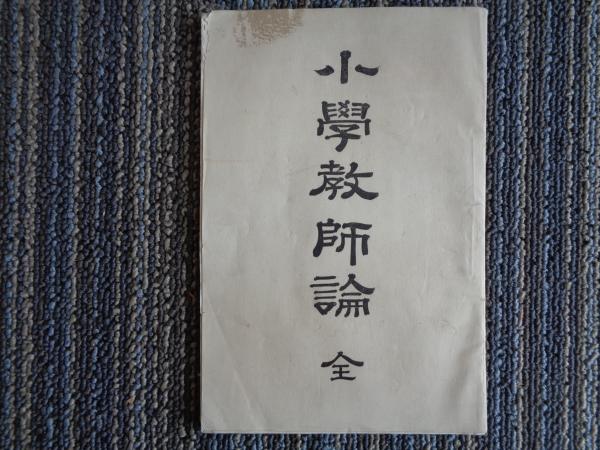 小學教師論 全